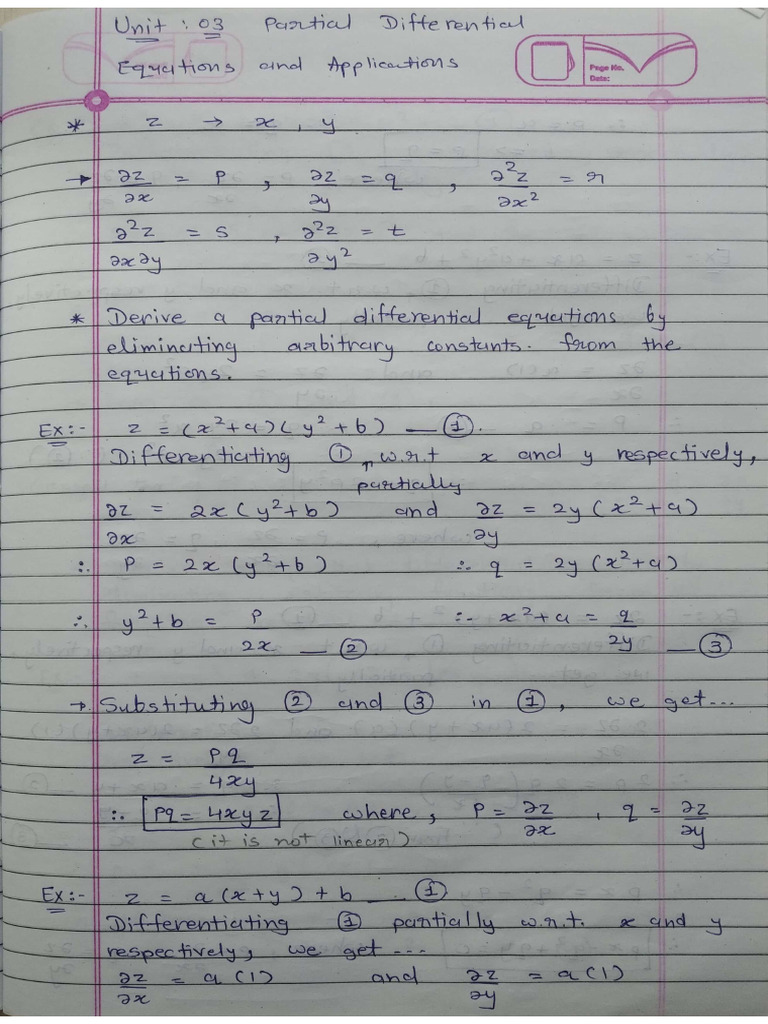 Unit : 03 Partial Differential
Equations and Applications
Page No.
Date:
* z → x , y
→ ∂z/∂x = p , ∂z/∂y = q , ∂²z/∂x² = r
∂²z/∂x∂y = s , ∂²z/∂y² = t
* Derive a partial differential equations by
eliminating arbitrary constants. from the
equations.
Ex:- z = (x²+a)(y²+b) — ①.
Differentiating ① , w.r.t x and y respectively,
partially
∂z/∂x = 2x(y²+b) and ∂z/∂y = 2y(x²+a)
∴ P = 2x(y²+b) ∴ q = 2y(x²+a)
∴ y²+b = P/2x — ② ∴ x²+a = q/2y — ③
→ Substituting ② and ③ in ①, we get...
z = Pq/4xy
∴ Pq = 4xyz where, P = ∂z/∂x , q = ∂z/∂y
(it is not linear)
Ex:- z = a(x+y)+b — ①
Differentiating ① partially w.r.t. x and y
respectively, we get ...
∂z/∂x = a(1) and ∂z/∂y = a(1)